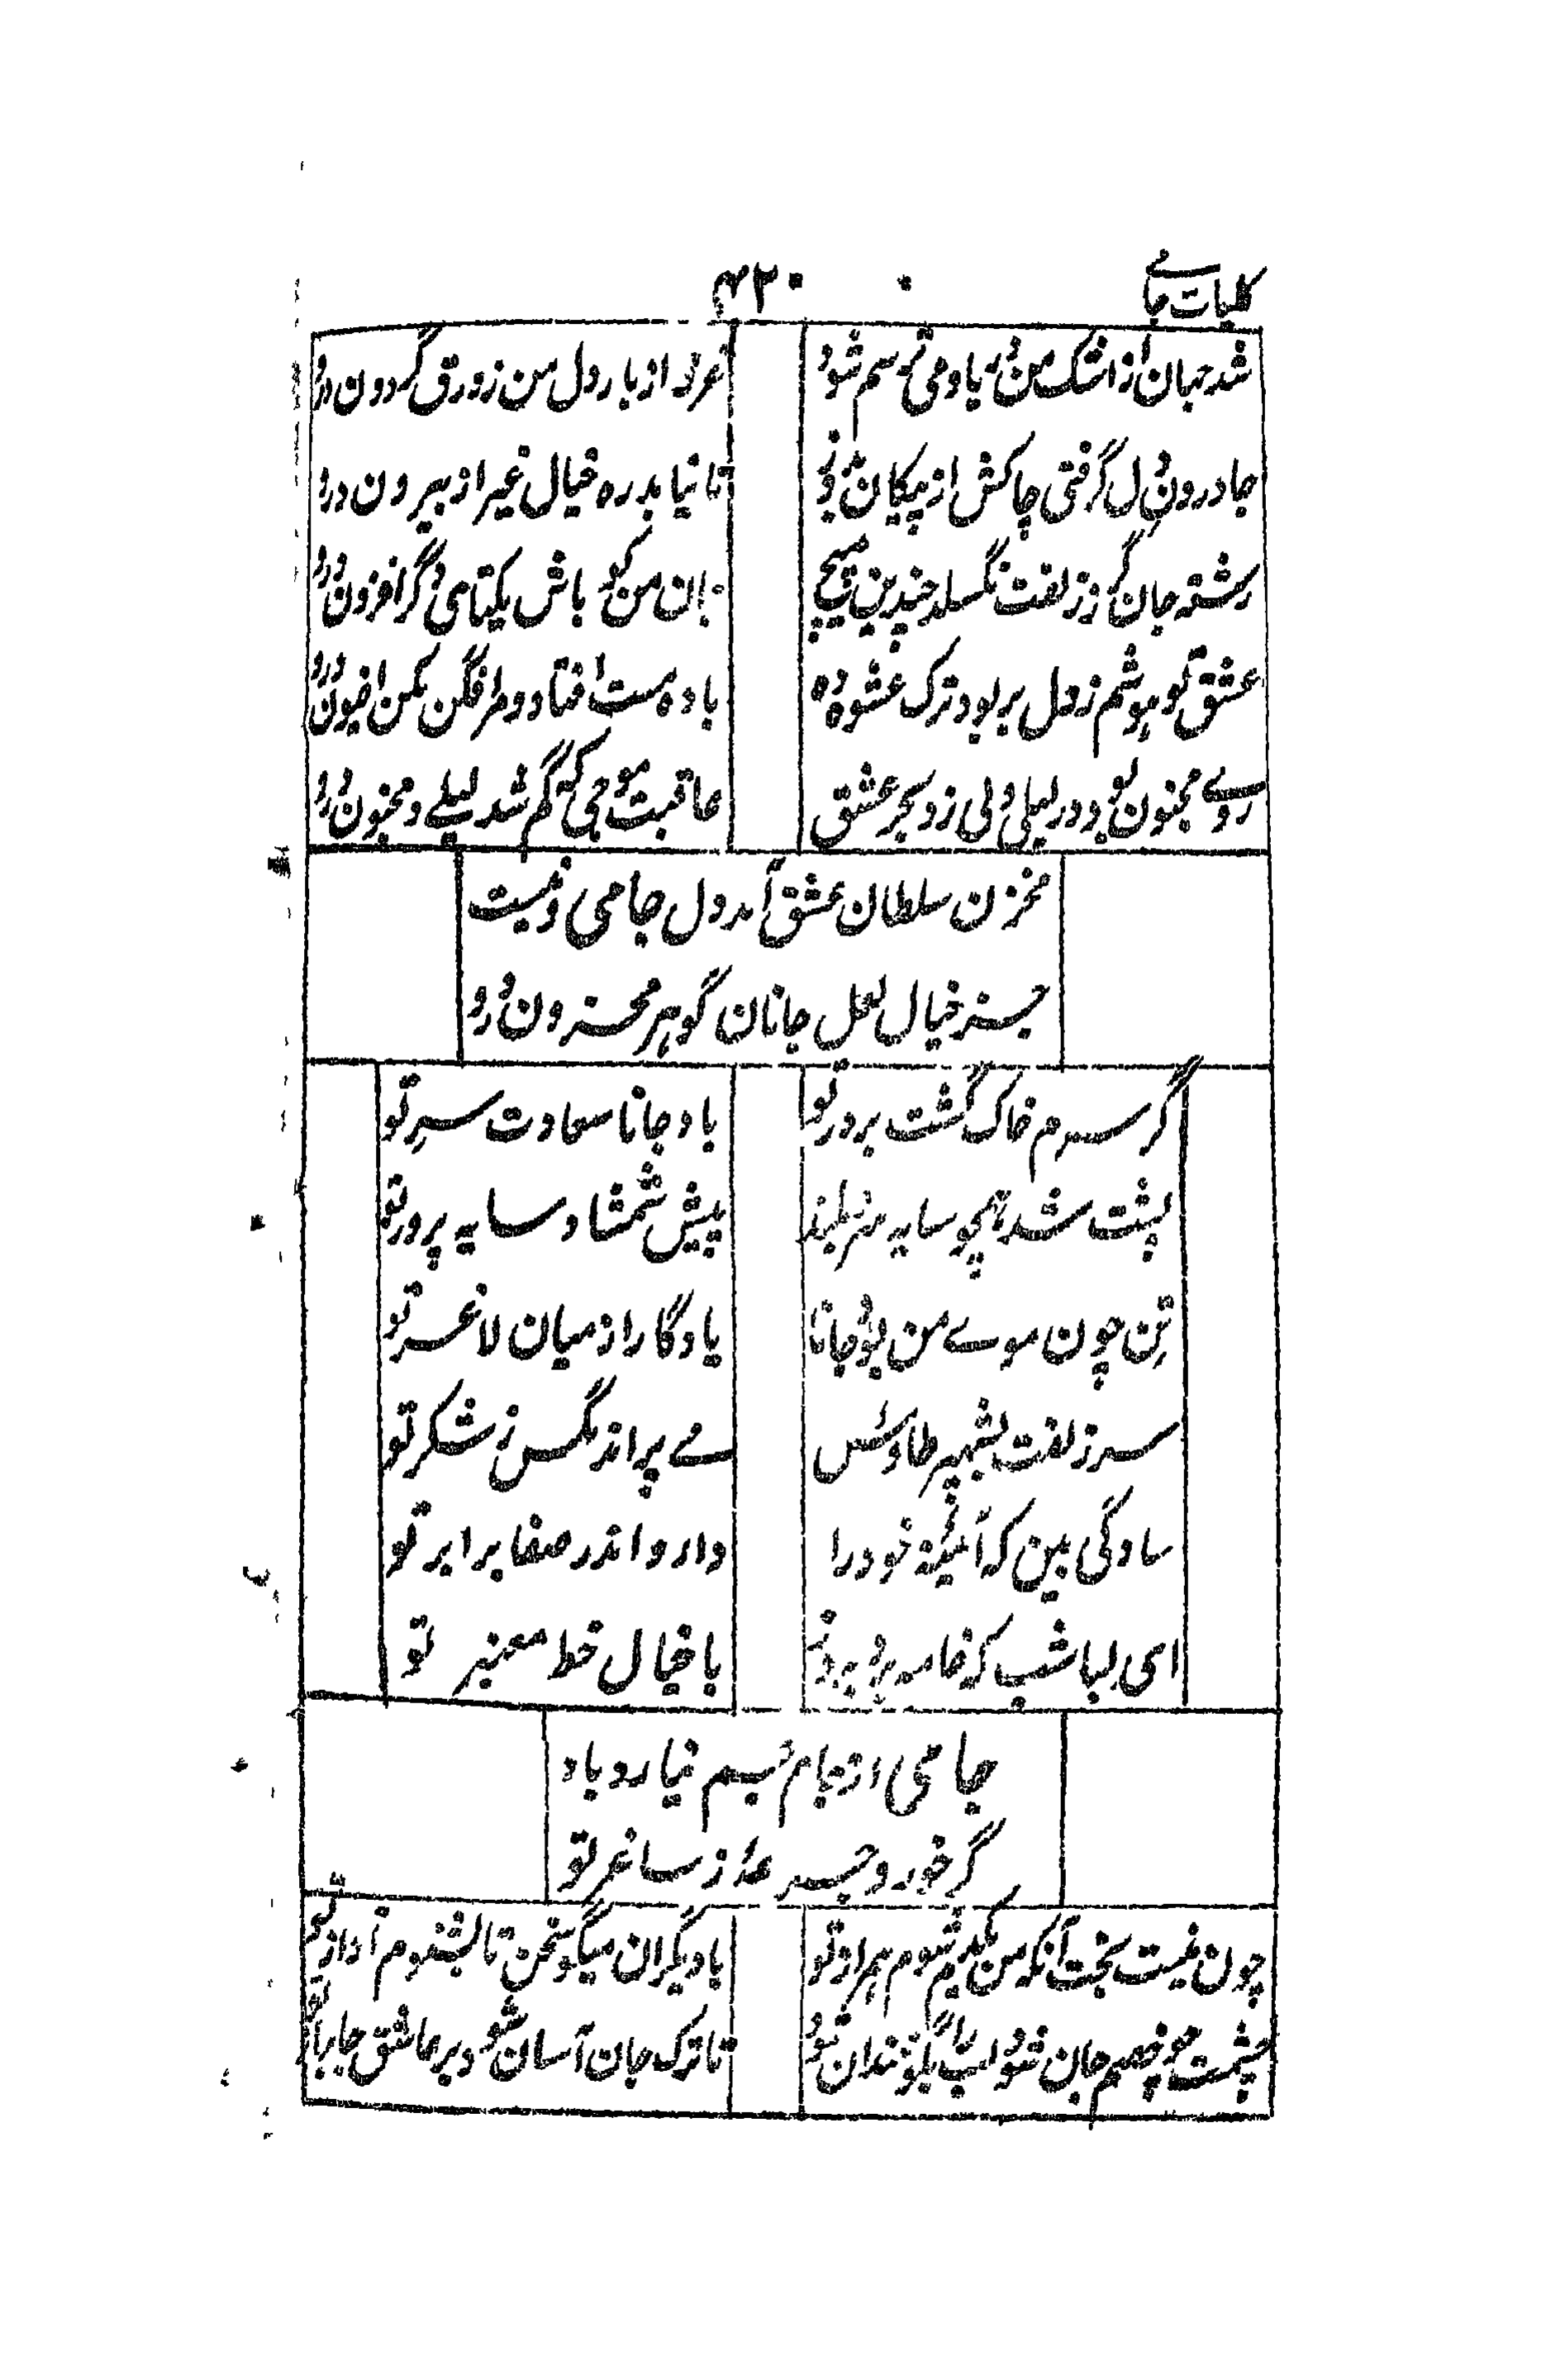 کلیات جامی
۴۲۰
شد جهان از اشک من دریا و می ترسم شود
غرق از بار دل من زورق گردون درو
جا درون دل گرفتی چاکش از پیکان بدوز
تا نیابد ره خیال غیر از بیرون درو
رشته جان گر ز زلفت نگسلد چندین مپیچ
زان من گو باش یکتاهی دگر افزون درو
عشق تو هوشم ز دل بربود ترک عشوه ده
باده مست افتاد و مرد افگن مکن افیون درو
روے مجنون بود در لیلی ولی زد بحر عشق
عاقبت موجی که گم شد لیلے و مجنون درو
مخزن سلطان عشق آمد دل جامی و نیست
جز خیال لعل جانان گوهر مخزون درو
گر سرم خاک گشت بر در تو
باد جانا سعادت سر تو
پشت شد همچو سایه سرو بلند
پیش شمشاد سایه پرور تو
تن چون موے من بود جانا
یادگار از میان لاغر تو
سر زلفت بشهپر طاوس
مے پراند مگس ز شکر تو
سادگی بین که آئینه خود را
دارد اندر صفا برابر تو
ای بسا شب که خامه بروز
با خیال خط معنبر تو
جامی از جام جم نیارد یاد
گر خورد جرعه از ساغر تو
چون نیست بخت آنکه من یکدم شوم همراز تو
با دیگران میگو سخن تا بشنوم آواز تو
چشمت چو خصم جان شود لب را بگو خندان شود
تا ترک جان آسان شود بر عاشق جانباز تو